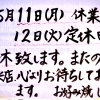 5月11日(月) 休業
12日(火)定休日
休致します。またの
来店心よりお待ちして
ます。 お好み焼